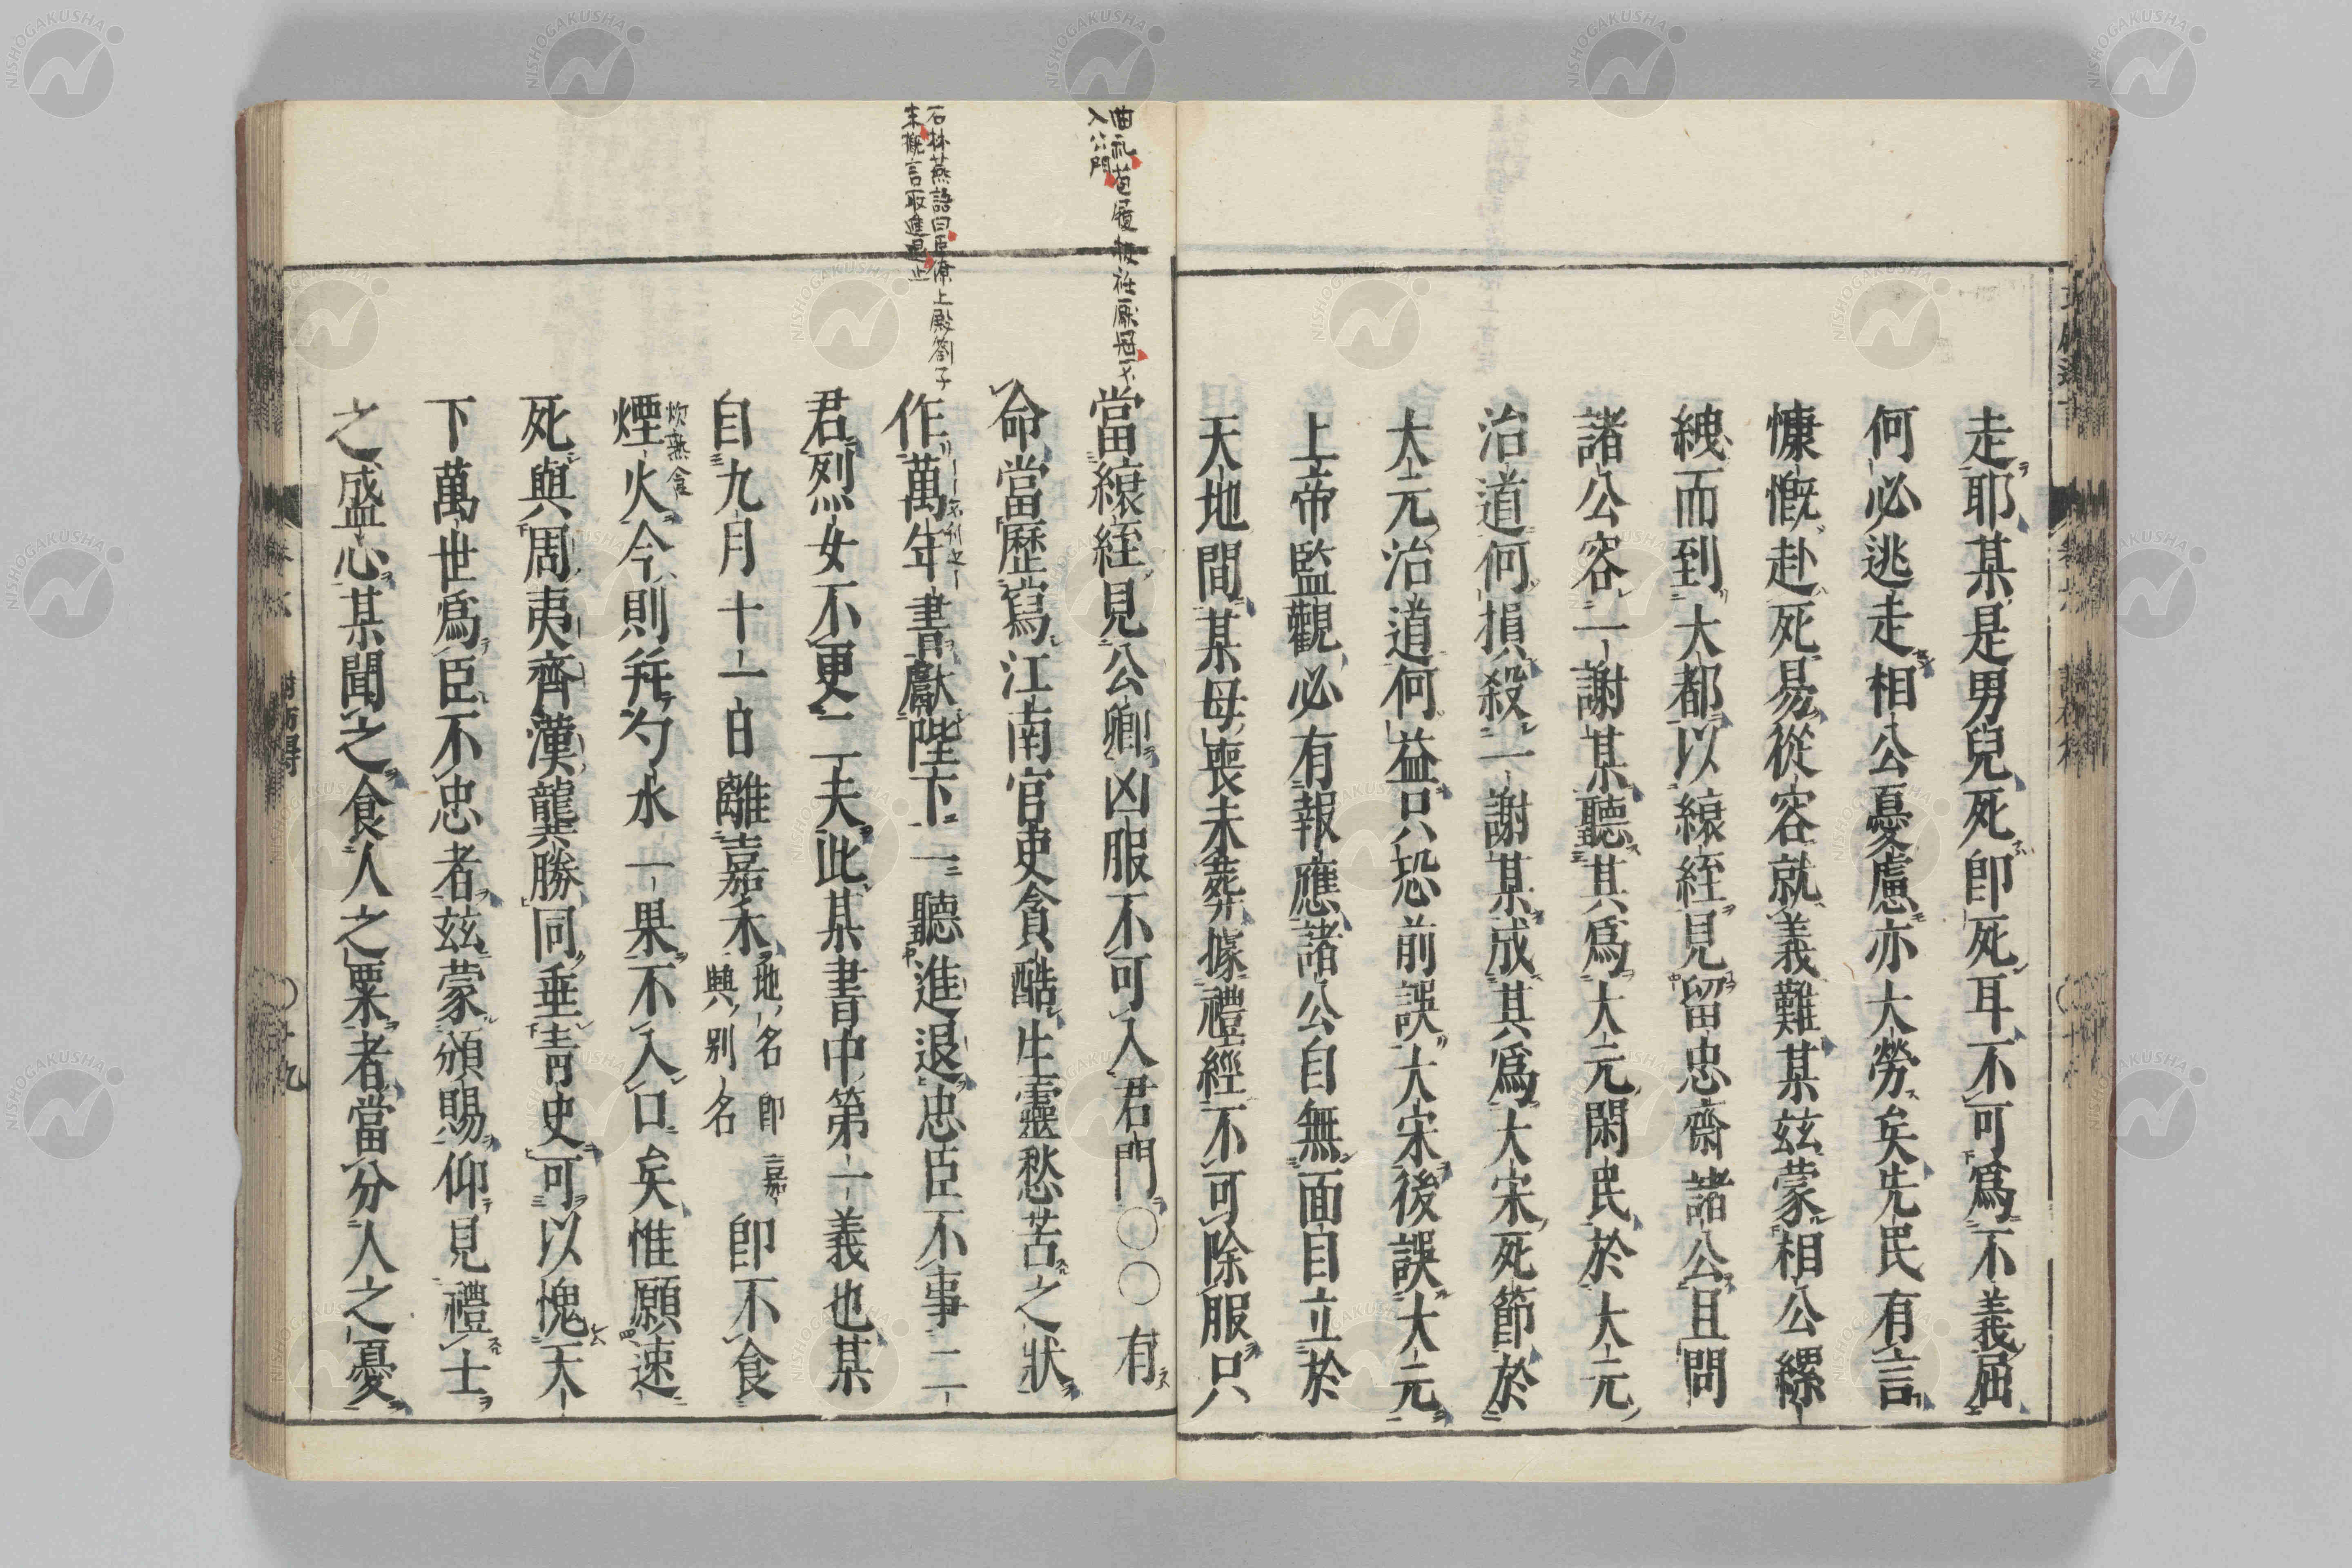 走耶某是男兒死即死耳不可爲不義屈
何必逃走相公憂慮亦大勞矣先民有言
慷慨赴死易從容就義難某玆蒙相公縲
絏而到大都以縗絰見留忠齋諸公且問
諸公容一謝某聽其爲大元閑民於大元
治道何損殺一謝某成其爲大宋死節於
大元治道何益只恐前誤大宋後誤大元
上帝監觀必有報應諸公自無面目立於
天地間某母喪未葬據禮經不可除服只
曲礼苞屨扱衽厭冠不
入公門
當縗絰見公卿凶服不可入君門〇〇有
命當歷寫江南官吏貪酷生靈愁苦之狀
石林燕語曰臣僚上殿劄子
末概言取進退止
作萬年書獻陛下一聽進退忠臣不事二
君烈女不更二夫此某書中第一義也某
自九月十一日離嘉禾地名即嘉興別名即不食
炊熟食
煙火今則幷勺水一果不入口矣惟願速
死與周夷齊漢龔勝同垂靑史可以愧天
下萬世爲臣不忠者玆蒙頒賜仰見禮士
之盛心某聞之食人之粟者當分人之憂
謝枋得
〇十九
NISHOGAKUSHA